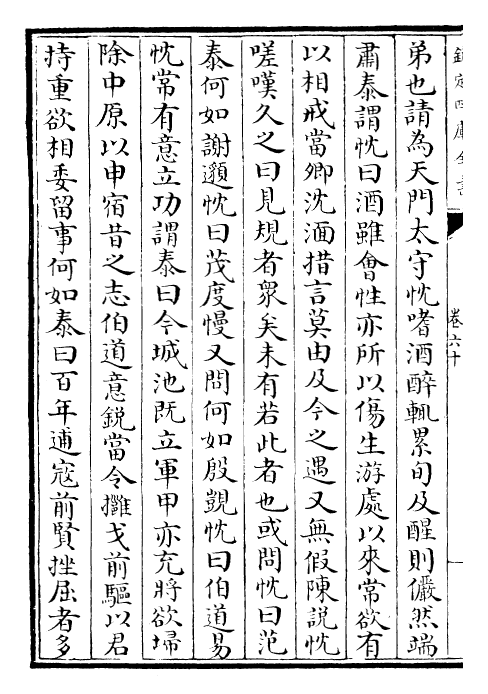 欽定四庫全書
卷六十
弟也請為天門太守忱嗜酒醉輒累旬及醒則儼然端
肅泰謂忱曰酒雖會性亦所以傷生游處以來常欲有
以相戒當卿沈湎措言莫由及今之遇又無假陳說忱
嗟嘆久之曰見規者衆矣未有若此者也或問忱曰范
泰何如謝邈忱曰茂度慢又問何如殷覬忱曰伯道易
忱常有意立功謂泰曰今城池既立軍甲亦充將欲埽
除中原以申宿昔之志伯道意鋭當令擁戈前驅以君
持重欲相委留事何如泰曰百年逋寇前賢挫屈者多